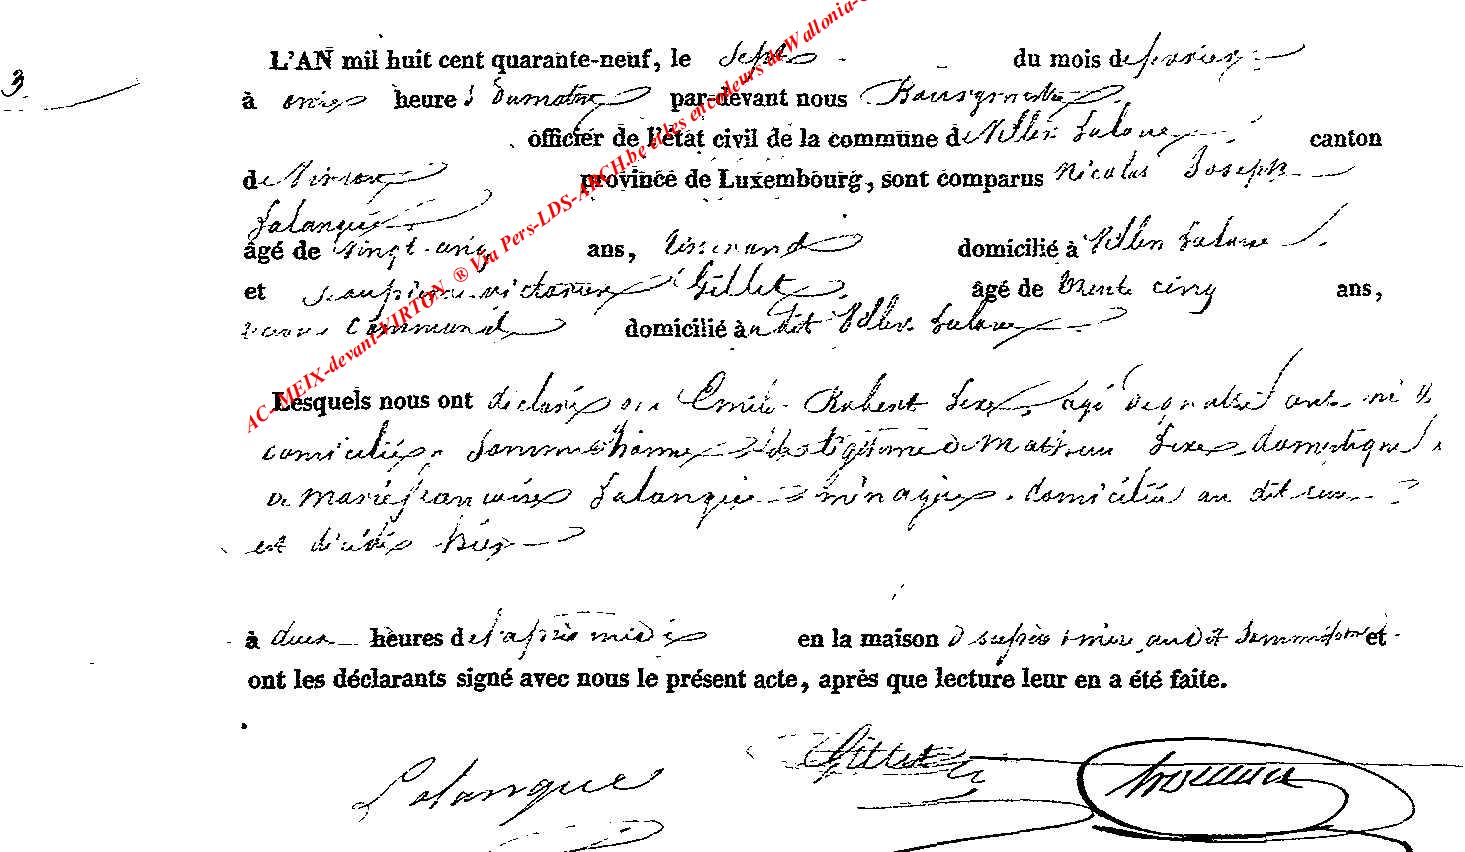 3
L'AN mil huit cent quarante-neuf, le sept du mois de février
à onze heures du matin par-devant nous Bourgmestre
officier de l'état civil de la commune de Villers Laloue canton
de Virton province de Luxembourg, sont comparus Nicolas Joseph
Lalangue
âgé de vingt cinq ans, tisserand domicilié à Villers Laloue
et Jean pierre victorien Gillet âgé de trente cinq ans,
domicilié au dit Villers Laloue
Lesquels nous ont déclaré que Emile Robert Lexe, agé de quatre ans né &
domicilié à Sommethonne fils légitime de Mathieu Lexe, domestique &
de Marie françoise Lalangue ménagère domiciliée au dit
est décédé hier
à deux heures de l'après midi en la maison de ses père & mère au dit Sommethonne et
ont les déclarants signé avec nous le présent acte, après que lecture leur en a été faite.
Lalangue Gillet
AC-MEIX-devant-VIRTON ® Via Pers-LDS-ARCH.be et les encodeurs de Wallonia-